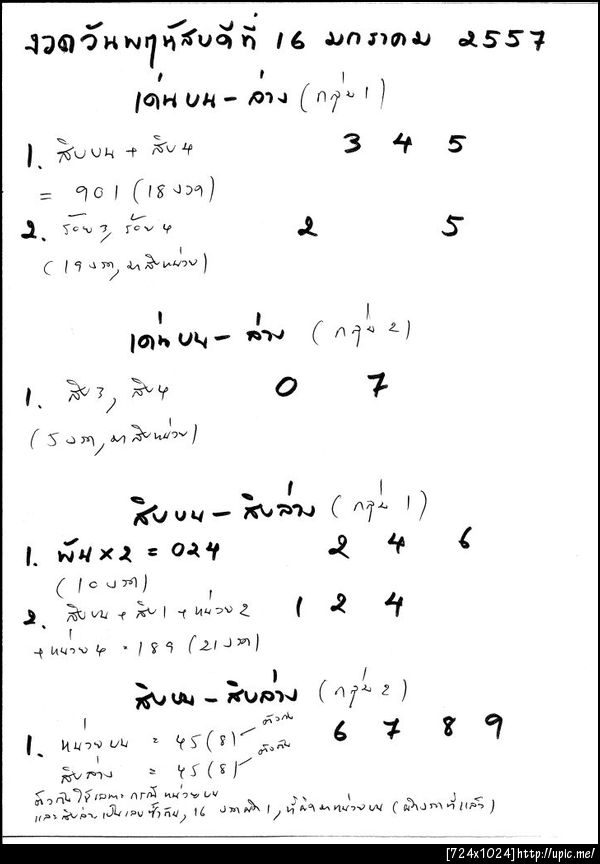 งวดวันพฤหัสบดีที่ 16 มกราคม 2557
เด่นบน - ล่าง (กลุ่ม 1)
1. สิบบน + สิบ 4 3 4 5
= 901 (18 งวด)
2. ร้อย 3, ร้อย 4 2 5
(19 งวด, มาสิบหน่วย)
เด่นบน - ล่าง (กลุ่ม 2)
1. สิบ 3, สิบ 4 0 7
(5 งวด, มาสิบหน่วย)
สิบบน - สิบล่าง (กลุ่ม 1)
1. พัน x 2 = 024 2 4 6
(10 งวด)
2. สิบบน + สิบ 1 + หน่วย 2 1 2 4
+ หน่วย 4 = 189 (21 งวด)
สิบบน - สิบล่าง (กลุ่ม 2)
1. หน่วยบน = 45 (8) ตัวกัน 6 7 8 9
สิบล่าง = 45 (8) ตัวกัน
ตัวกันใช้เฉพาะกรณีหน่วยบน
และสิบล่างเป็นเลขซ้ำกัน, 16 งวดผิด 1, ที่ผิดมาหน่วยบน (ผิดงวดที่แล้ว)
[724x1024]http://upic.me/